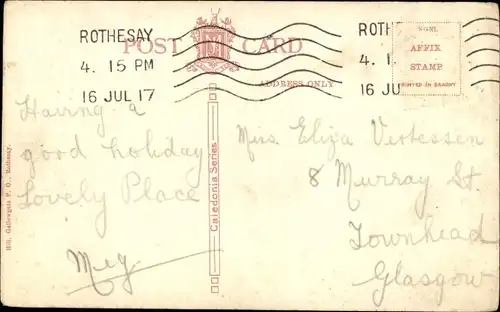 ROTHESAY
4. 15 PM
16 JUL 17
POST CARD
ADDRESS ONLY
ROTH
4. 1
16 JU
AFFIX
STAMP
PRINTED IN SAXONY
Having a
good holiday
Lovely Place
Meg
Caledonia Series
Hill, Gallowgate P. O., Rothesay.
Miss Eliza Vertessen
8 Murray St.
Townhead
Glasgow